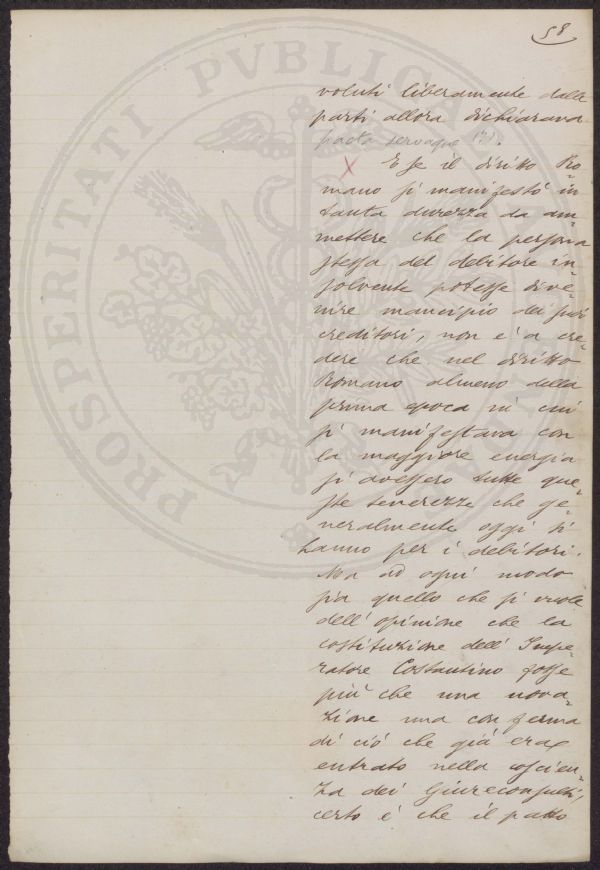 58
voluti liberamente dalle
parti allora dichiarava
pacta servaque
X E se il diritto Ro=
mano si manifestò in
tanta durezza da am=
mettere che la persona
stessa del debitore in=
solvente potesse dive=
nire mancipio dei suoi
creditori, non è a cre=
dere che nel diritto
Romano almeno della
prima epoca in cui
si manifestava con
la maggiore energia
si avessero tutte que=
ste tenerezze che ge=
neralmente oggi si
hanno per i debitori.
Ma ad ogni modo
sia quello che si vuole
dell' opinione che la
costituzione dell' Impe=
ratore Costantino fosse
più che una nova=
zione una conferma
di ciò che già era
entrato nella coscien=
za dei Giureconsulti,
certo è che il patto
PROSPERITATI PVBLICAE